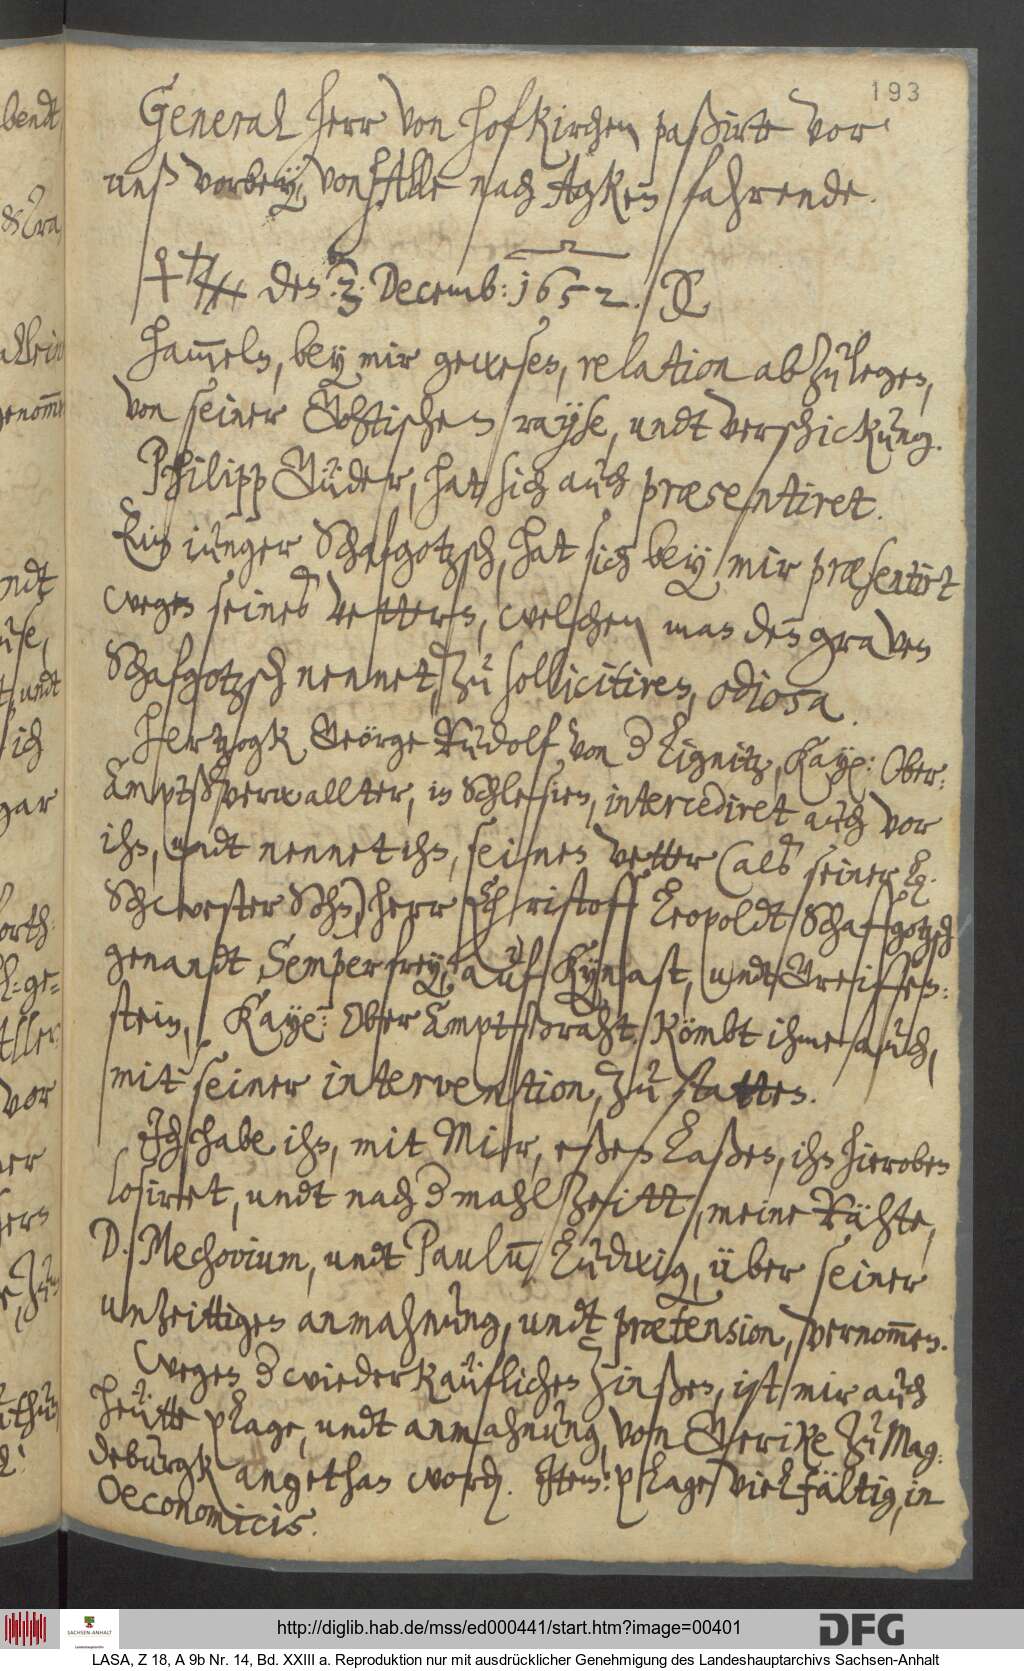 193
General Herr von Hofkirchen paßirte vor
unß vorbey, von Halle nach Agken fahrende.
den 3. Decemb: 1652.
Hammeln, bey mir gewesen, relation abzulegen,
von seiner rayse, undt verschickung.
Philipp Güder, hat sich auch præsentiret.
Ein iunger Schafgotzsch, hat sich bey mir præsentirt
wegen seines Vetters, welchen man den graven
Schafgotzsch nennet, zu sollicitiren, odiosa.
Hertzogk Geörge Rudolf von der Lignitz, Kay: Ober-
Amptßverwallter, in Schlesien, intercediret auch vor
ihn, undt nennet ihn, seinen Vetter (alß seiner
Schwester Sohn) Herr Christoff Leopoldt Schaffgotzsch
genandt Semperfrey, auf Kynast, undt Greiffen-
stein, Kay: Ober Amptßraht. Kömbt ihme auch,
mit seiner intervention, zu statten.
Ich habe ihn, mit Mir, eßen laßen, ihn hieroben
losiret, undt nach der mahlzeitt, meine Rähte,
D. Mechovium, undt Paulum Ludwig, über seiner
unzeittigen anmahnung, undt prætension, vernommen.
Wegen der wiederkäuflichen Zinßen, ist mir auch
heütte plage, undt anmahnung, von Gericke zu Mag-
deburgk angethan worden. Item: plage vielfältig, in
Oeconomicis.
http://diglib.hab.de/mss/ed000441/start.htm?image=00401
DFG
SACHSEN-ANHALT
LASA, Z 18, A 9b Nr. 14, Bd. XXIII a. Reproduktion nur mit ausdrücklicher Genehmigung des Landeshauptarchivs Sachsen-Anhalt